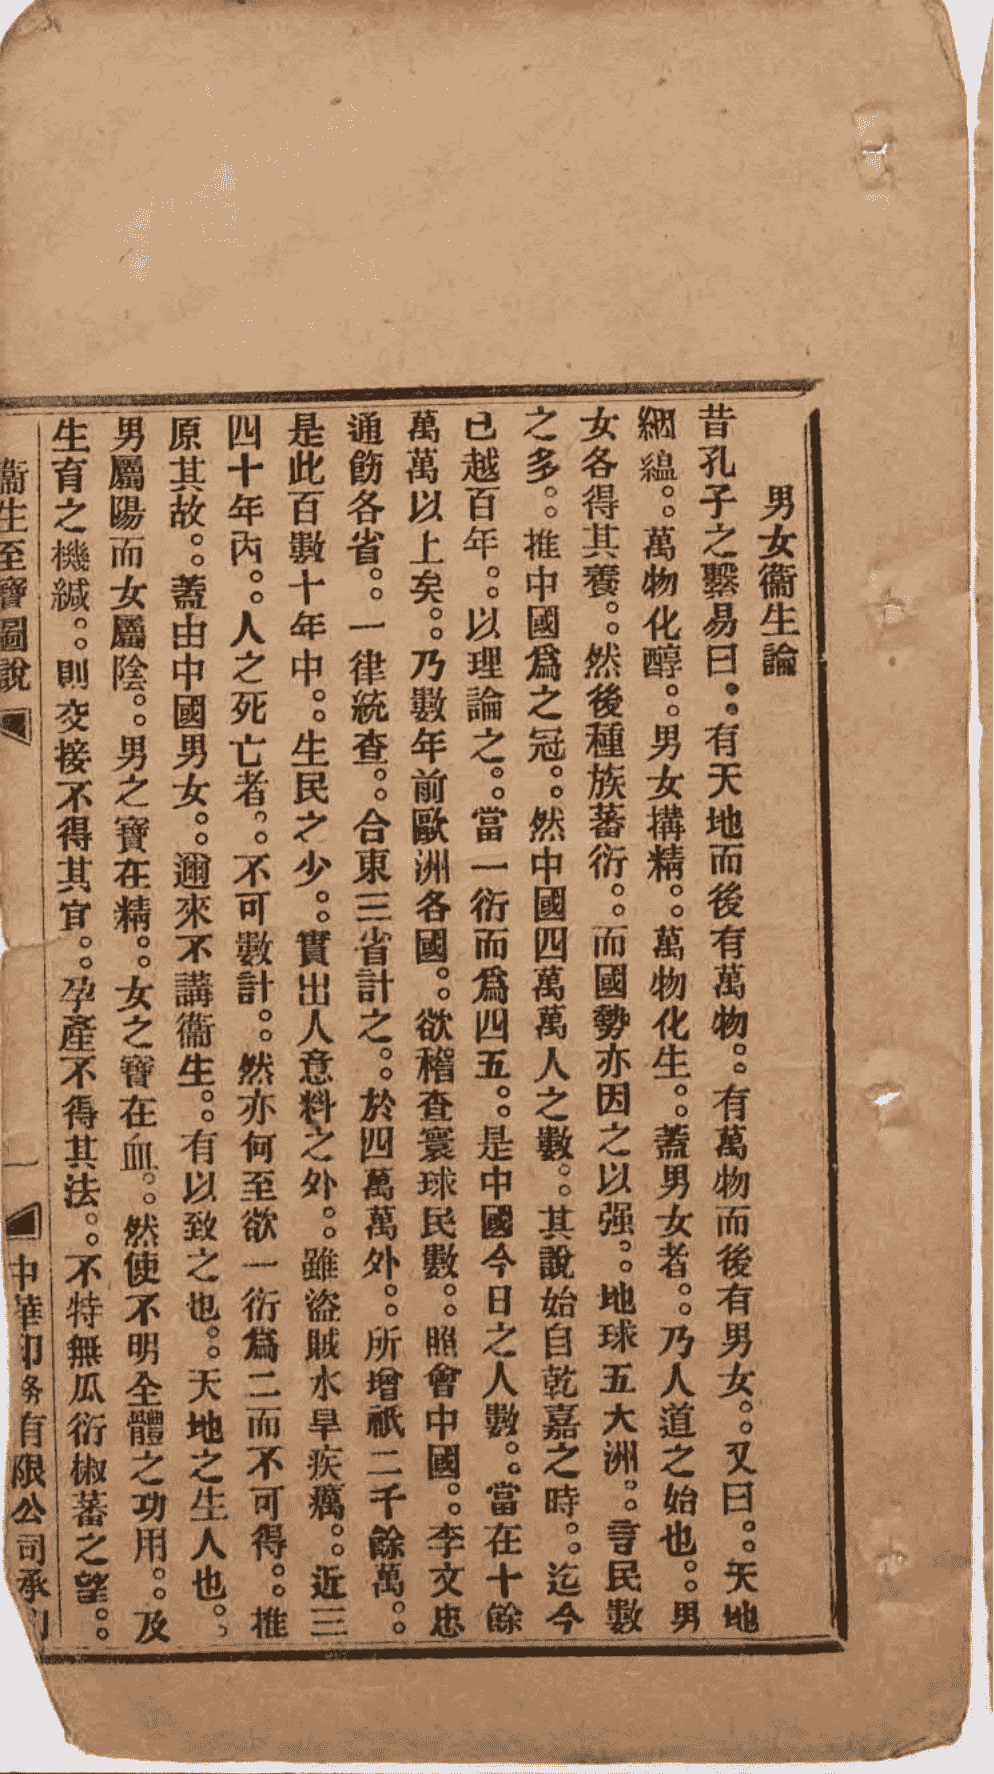 男女衞生論
昔孔子之繫易曰。。有天地而後有萬物。。有萬物而後有男女。。又曰。。天地
絪縕。。萬物化醇。。男女搆精。。萬物化生。。蓋男女者。。乃人道之始也。。男
女各得其養。。然後種族蕃衍。。而國勢亦因之以强。。地球五大洲。。言民數
之多。。推中國爲之冠。。然中國四萬萬人之數。。其說始自乾嘉之時。。迄今
已越百年。。以理論之。。當一衍而爲四五。。是中國今日之人數。。當在十餘
萬萬以上矣。。乃數年前歐洲各國。。欲稽查寰球民數。。照會中國。。李文忠
通飭各省。。一律統查。。合東三省計之。。於四萬萬外。。所增祇二千餘萬。。
是此百數十年中。。生民之少。。實出人意料之外。。雖盜賊水旱疾癘。。近三
四十年內。。人之死亡者。。不可數計。。然亦何至欲一衍爲二而不可得。。推
原其故。。蓋由中國男女。。邇來不講衞生。。有以致之也。。天地之生人也。。
男屬陽而女屬陰。。男之寶在精。。女之寶在血。。然使不明全體之功用。。及
生育之機緘。。則交接不得其宜。。孕產不得其法。。不特無瓜衍椒蕃之望。。
衞生至寶圖說 一 中華印务有限公司承印